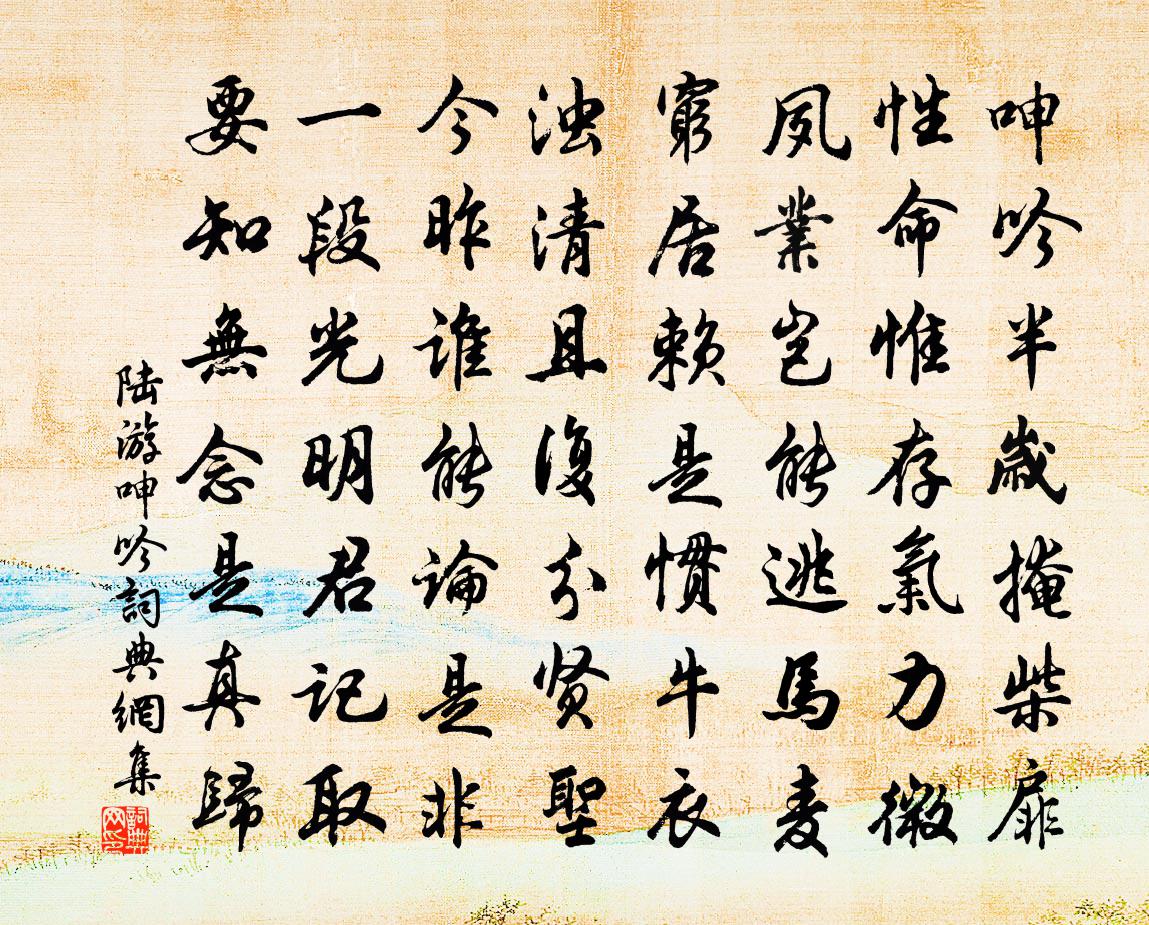 呻吟半歲掩柴扉
性命惟存氣力微
夙業豈能逃馬麦
窮居赖是慣牛衣
浊清且復分贤聖
今昨谁能論是非
一段光明君记取
要知無念是真歸
陆游呻吟詞典網集
詞典网印